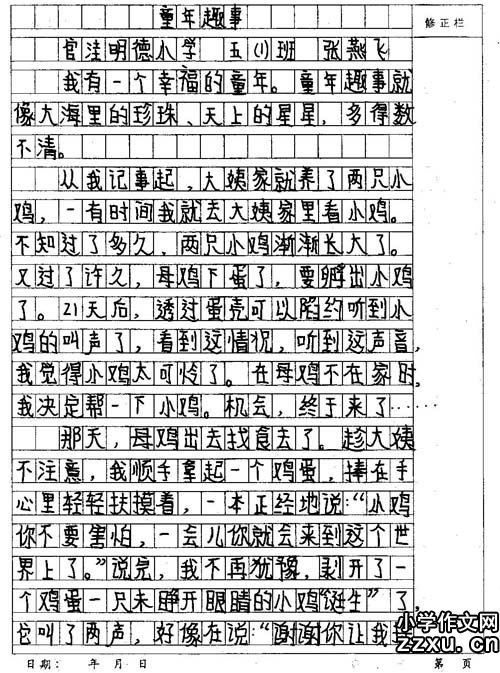 童年趣事
修正栏
官洼明德小学 五(1)班 张燕飞
我有一个幸福的童年。童年趣事就
像大海里的珍珠、天上的星星，多得数
不清。
从我记事起，大姨家就养了两只小
鸡，一有时间我就去大姨家里看小鸡。
不知过了多久，两只小鸡渐渐长大了。
又过了许久，母鸡下蛋了，要孵出小鸡
了。21天后，透过蛋壳可以陷约听到小
鸡的叫声了，看到这情况，听到这声音，
我觉得小鸡太可怜了。在母鸡不在家时，
我决定帮一下小鸡。机会，终于来了……
那天，母鸡出去找食去了。趁大姨
不注意，我顺手拿起一个鸡蛋，捧在手
心里轻轻扶摸着，一本正经地说：“小鸡
你不要害怕，一会儿你就会来到这个世
界上了。”说完，我不再犹豫，剥开了一
个鸡蛋一只未睁开眼睛的小鸡“诞生”了，
它叫了两声，好像在说：“谢谢你让我
小学作文网
zzxu.cn
日期： 年 月 日 第 页